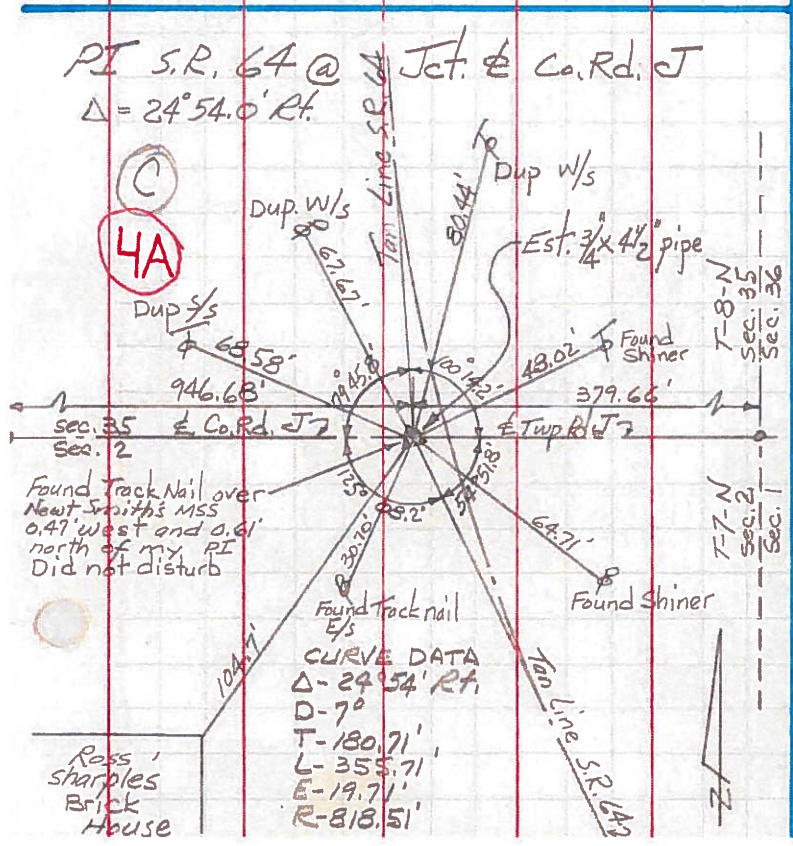 PI S.R. 64 @ Jct. ℄ Co. Rd. J
Δ = 24°54.0' Rt.
C
4A
Tan Line S.R. 64
Dup W/s
80.44'
Dup. W/s
67.67'
Est. 3/4" x 4 1/2" pipe
Dup S/s
68.58'
48.02'
Found
Shiner
T-8-N
Sec. 35
Sec. 36
79°45.8'
100°14.2'
946.68'
379.66'
Sec. 35
Sec. 2
℄ Co. Rd. J
℄ Twp Rd J
Found Track Nail over
Newt Smith's MSS
0.47' west and 0.61'
north of my PI
Did not disturb
125°
08.2'
54°51.8'
T-7-N
Sec. 2
Sec. 1
30.70'
64.71'
Found Track nail
E/s
Found Shiner
104.7'
CURVE DATA
Δ - 24°54' Rt.
D - 7°
T - 180.71'
L - 355.71'
E - 19.71'
R - 818.51'
Tan Line S.R. 64
Ross
Sharples
Brick
House
N